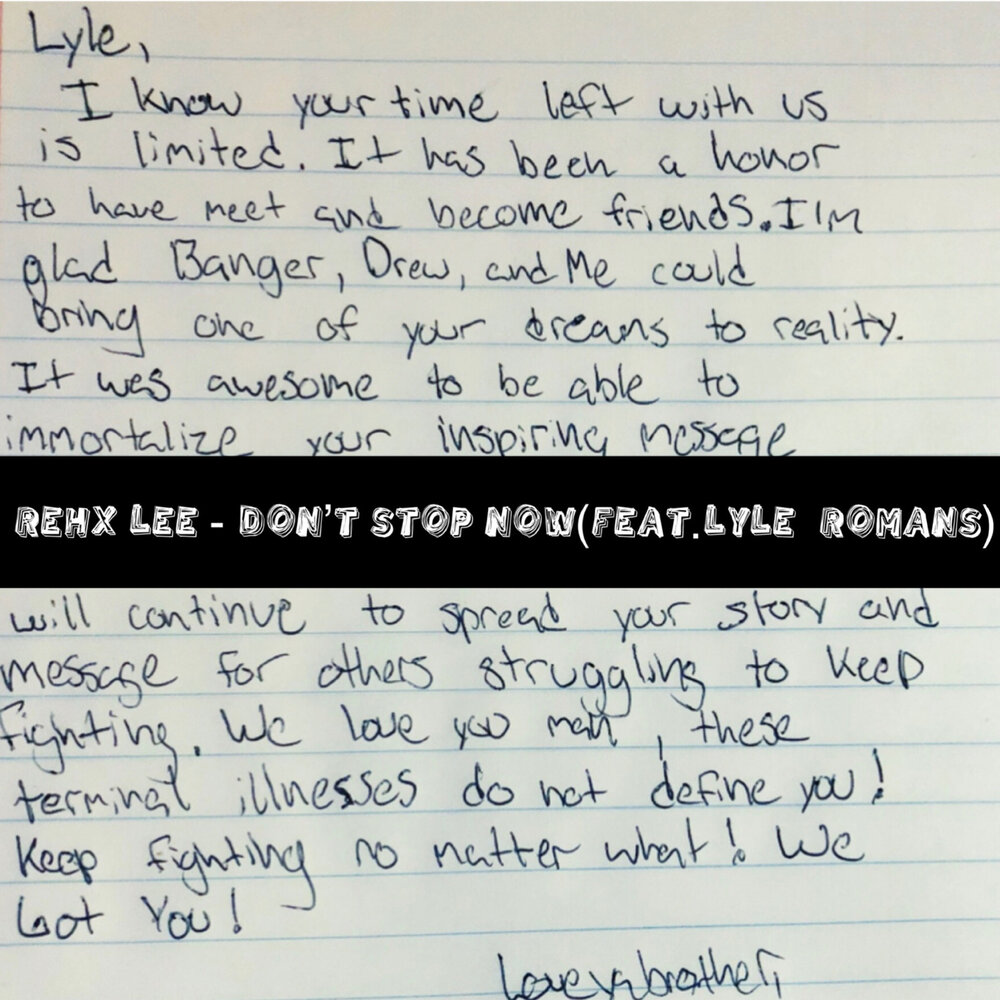 Lyle,
I know your time left with us
is limited. It has been a honor
to have meet and become friends. I'm
glad Banger, Drew, and Me could
bring one of your dreams to reality.
It was awesome to be able to
immortalize your inspiring message
REHX LEE - DON'T STOP NOW(FEAT.LYLE ROMANS)
will continue to spread your story and
message for others struggling to keep
fighting. We love you man, these
terminal illnesses do not define you!
Keep fighting no matter what! We
Got You!
Love ya brother,